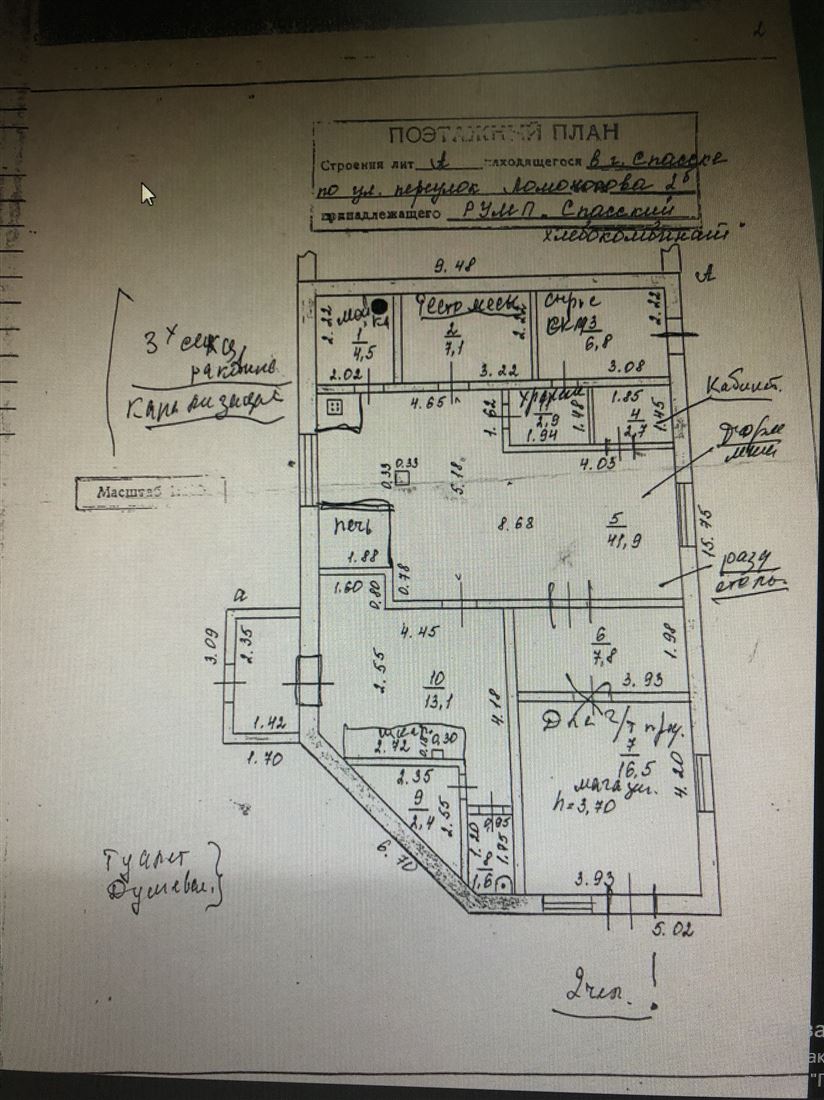 2
ПОЭТАЖНЫЙ ПЛАН
Строения лит А находящегося в г. Спасске
по ул. переулок Ломоносова 2б
принадлежащего РУМП. Спасский
хлебокомбинат
9.48
А
2.22
1
4,5
2.02
Тестомесы
2
7,1
2.22
3.22
сырье
3
6,8
2.22
3.08
3х секц
раковина
Канализация
Кабинет.
4.65
1.62
2,9
1.94
1.48
1.85
4
2,7
1.45
4.03
0.33
0.33
5.18
Масштаб
8.68
5
41,9
15.75
печь
1.88
разд
столы.
1.60
0,80
0.78
а
3.09
2.35
1.42
1.70
4.45
2.55
10
13,1
4.18
6
7,8
1.98
3.93
2.72
0.30
7
16,5
магазин.
h=3,70
4.20
2.35
9
2,4
2.55
6.70
0,95
1.20
1.85
8
1,6
3.93
5.02
Туалет
Душевая
2 чел.